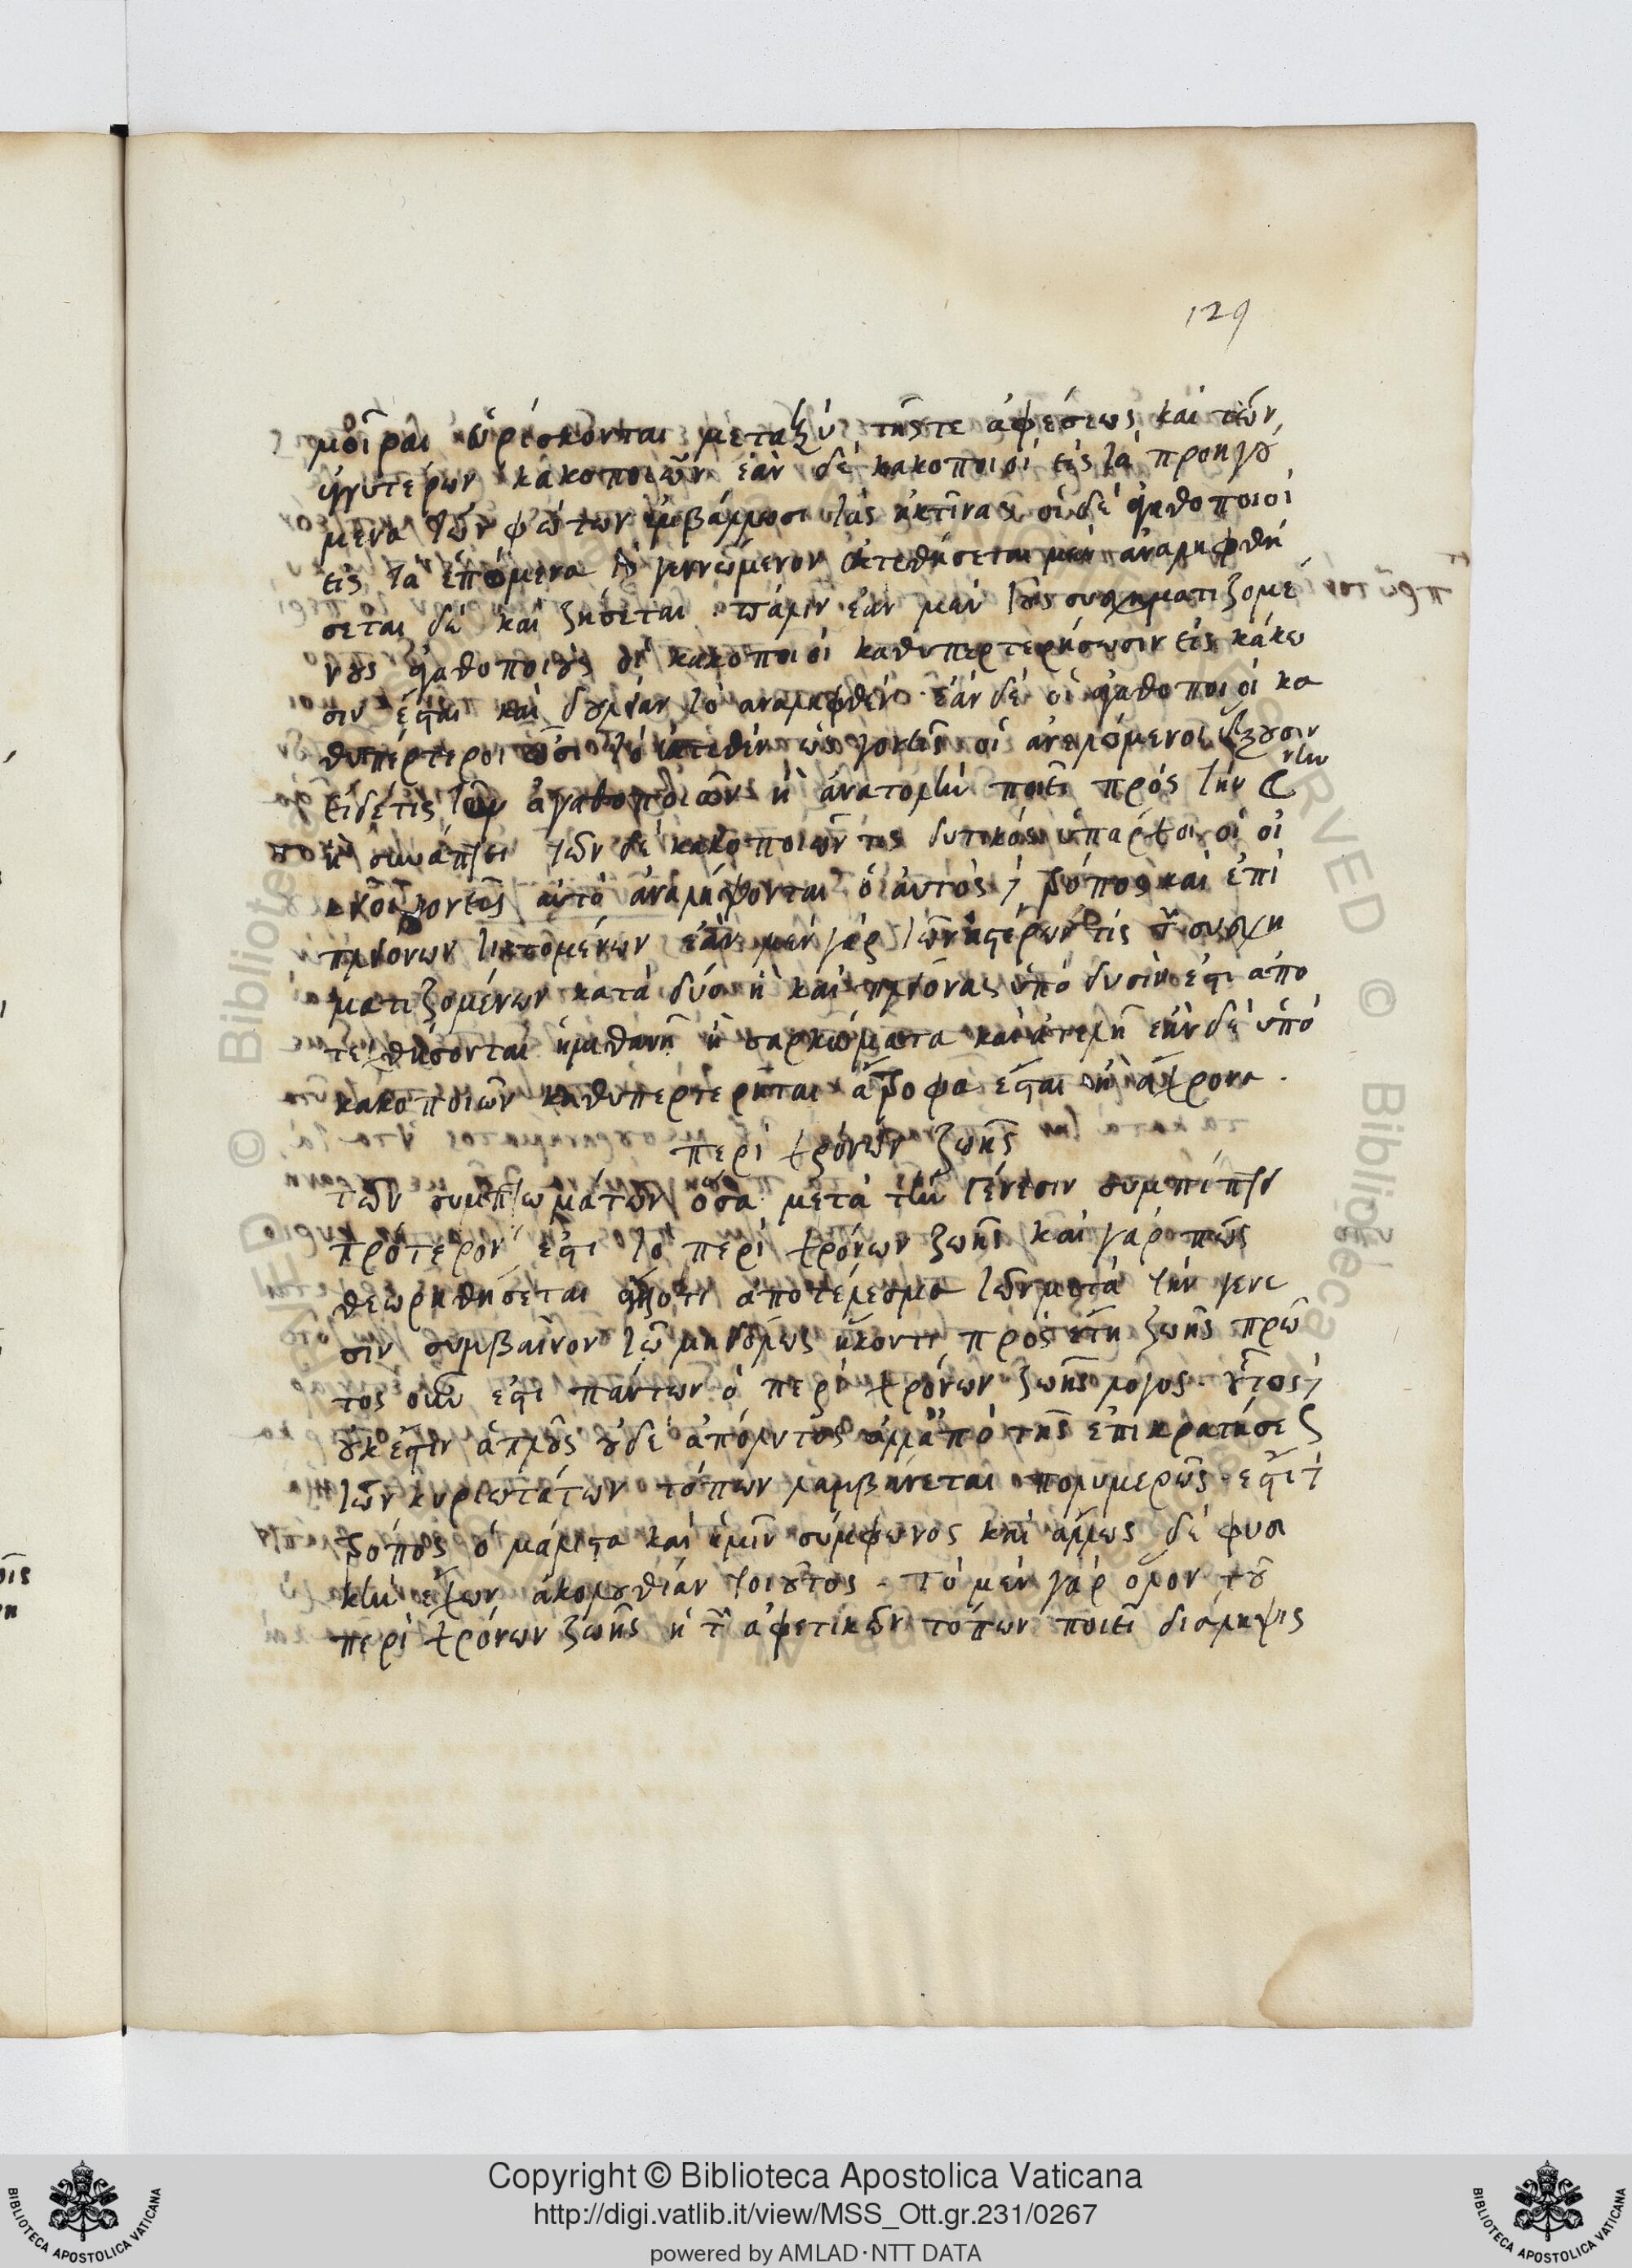 129
μοῖραι εὑρίσκονται μεταξύ τῆς τε ἀφέσεως καὶ τῶν
ἐγγυτέρων κακοποιῶν ἐὰν δὲ κακοποιοὶ εἰς τὰ προηγού
μενα τῶν φώτων ἐμβάλλωσι τὰς ἀκτῖνας οἱ δὲ ἀγαθοποιοὶ
εἰς τὰ ἑπόμενα τὸ γεννώμενον ἐκτεθήσεται μὲν ἀναληφθή
σεται δὲ καὶ ζήσεται πάλιν ἐὰν μὲν τοὺς συσχηματιζομέ
νους ἀγαθοποιοὺς οἱ κακοποιοὶ καθυπερτερήσωσιν εἰς κάκω
σιν ἔσται καὶ δουλείαν τὸ ἀναληφθὲν ἐὰν δὲ οἱ ἀγαθοποιοὶ κα
θυπέρτεροι ὦσι τὸ ἐκτεθὲν ὡς γονεῖς οἱ ἀνελόμενοι ἕξουσιν
εἰ δέ τις τῶν ἀγαθοποιῶν ἢ ἀνατολὴν ποιεῖ πρὸς τὴν ☾
ἢ συνάπτει τῶν δὲ κακοποιῶν τις δυτικὸς ὑπάρχοι οἱ οἰ
κοι αὐτὸ ἀναλήψονται ὁ αὐτὸς τρόπος καὶ ἐπὶ
πλειόνων τικτομένων ἐὰν μὲν γὰρ τῶν ἀστέρων τις συσχη
ματιζομένων κατὰ δύσιν ἢ καὶ πλείονας ὑπὸ δύσιν ἐστι ἀπο
τεχθήσονται ἡμιθανῆ ἢ σαρκώματα καὶ ἀτελῆ ἐὰν δὲ ὑπὸ
κακοποιῶν καθυπερτερῆται ἄτροφα ἔσται ἢ ἄχρονα.
περὶ χρόνων ζωῆς
τῶν συμπτωμάτων ὅσα μετὰ τὴν γένεσιν συμπίπτει
πρότερον ἐστι τὸ περὶ χρόνων ζωῆς καὶ γὰρ πῶς
θεωρηθήσεται ἀποτέλεσμα τῶν μετὰ τὴν γενε
σιν συμβαῖνον τῷ μηδόλως ἥκοντι πρὸς ἔτη ζωῆς πρῶ
τος οὖν ἐστι πάντων ὁ περὶ χρόνων ζωῆς λόγος. οὗτος
οὐκ ἔστιν ἁπλοῦς οὐδὲ ἀπόλυτος ἀλλ' ἀπὸ τῆς ἐπικρατήσεως
τῶν κυριωτάτων τόπων λαμβάνεται πολυμερῶς. ἐστι
τρόπος ὁ μάλιστα καὶ ἡμῖν σύμφωνος καὶ ἄλλως δὲ φυσι
κὴν ἔχων ἀκολουθίαν τοιοῦτος. τὸ μὲν γὰρ ὅλον τοῦ
περὶ χρόνων ζωῆς ἡ τῶν ἀφετικῶν τόπων ποιεῖ διάληψις
© Biblioteca Apostolica Vaticana
Copyright © Biblioteca Apostolica Vaticana
http://digi.vatlib.it/view/MSS_Ott.gr.231/0267
powered by AMLAD·NTT DATA
BIBLIOTECA APOSTOLICA VATICANA
BIBLIOTECA APOSTOLICA VATICANA